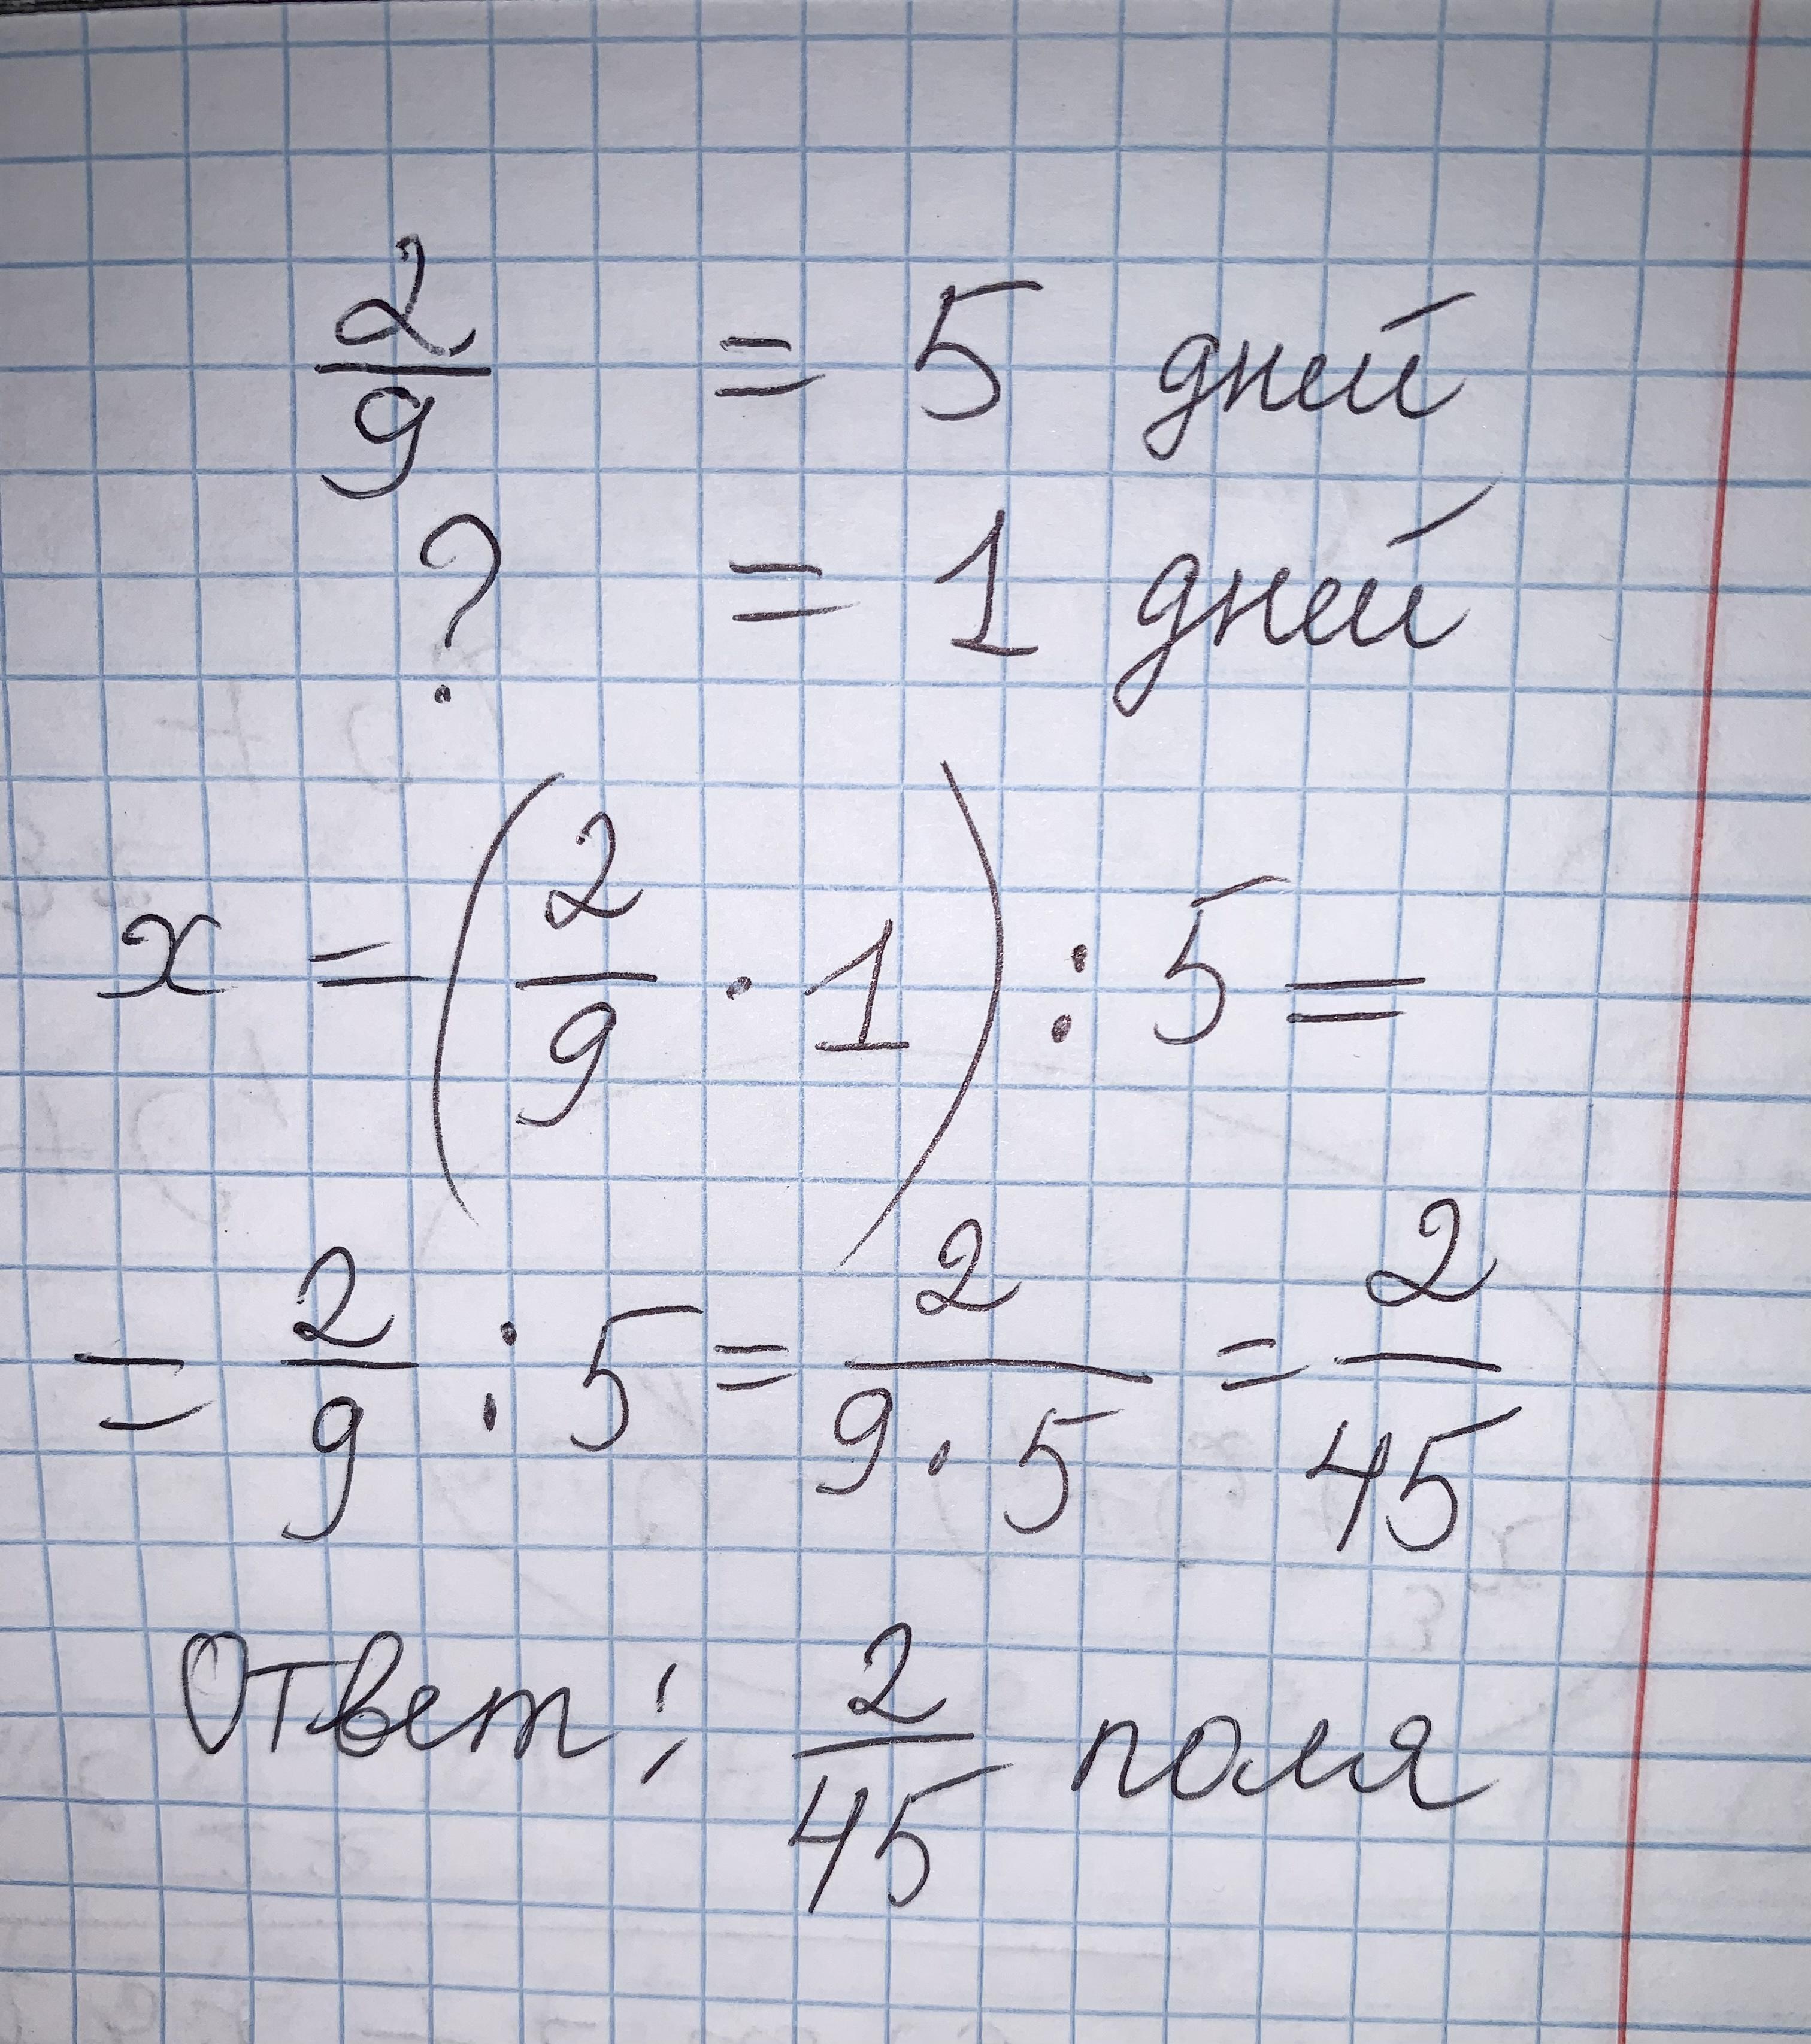 2/9 = 5 дней
? = 1 дней
x = (2/9 · 1) : 5 =
= 2/9 : 5 = 2/(9 · 5) = 2/45
Ответ: 2/45 поля